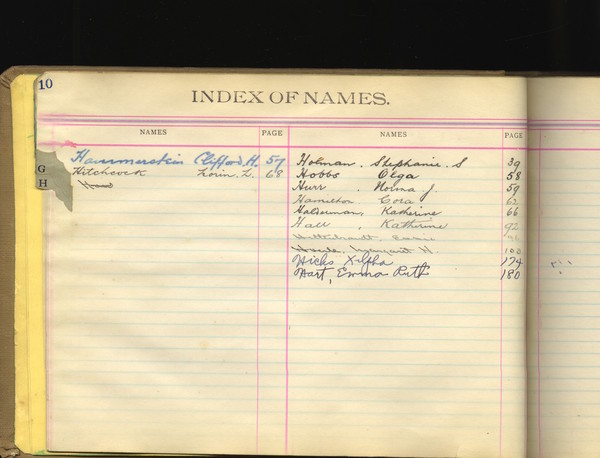 10
INDEX OF NAMES.
NAMES PAGE NAMES PAGE
G
H
Hammerstein Clifford H. 57
Hitchcock Lorin L. 68
Holman, Stephanie S 39
Hobbs Olga 58
Hurr, Norma J. 59
Hamilton, Cora 62
Halderman, Katherine 66
Hall, Katherine 92
Margaret H. 100
Hicks Xilpha 174
Hart, Emma Ruth 180